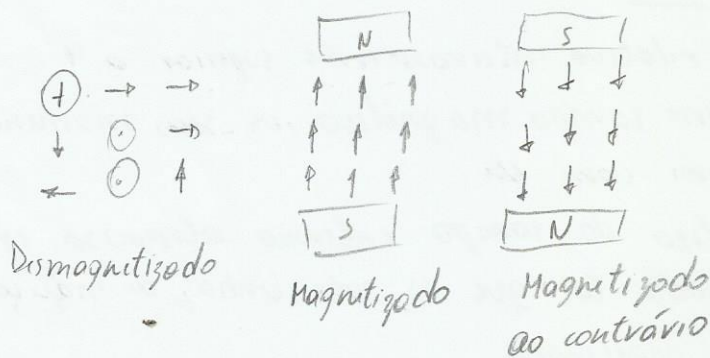 N
S
S
N
Dismagnetizado
Magnetizado
Magnetizado
ao contrário